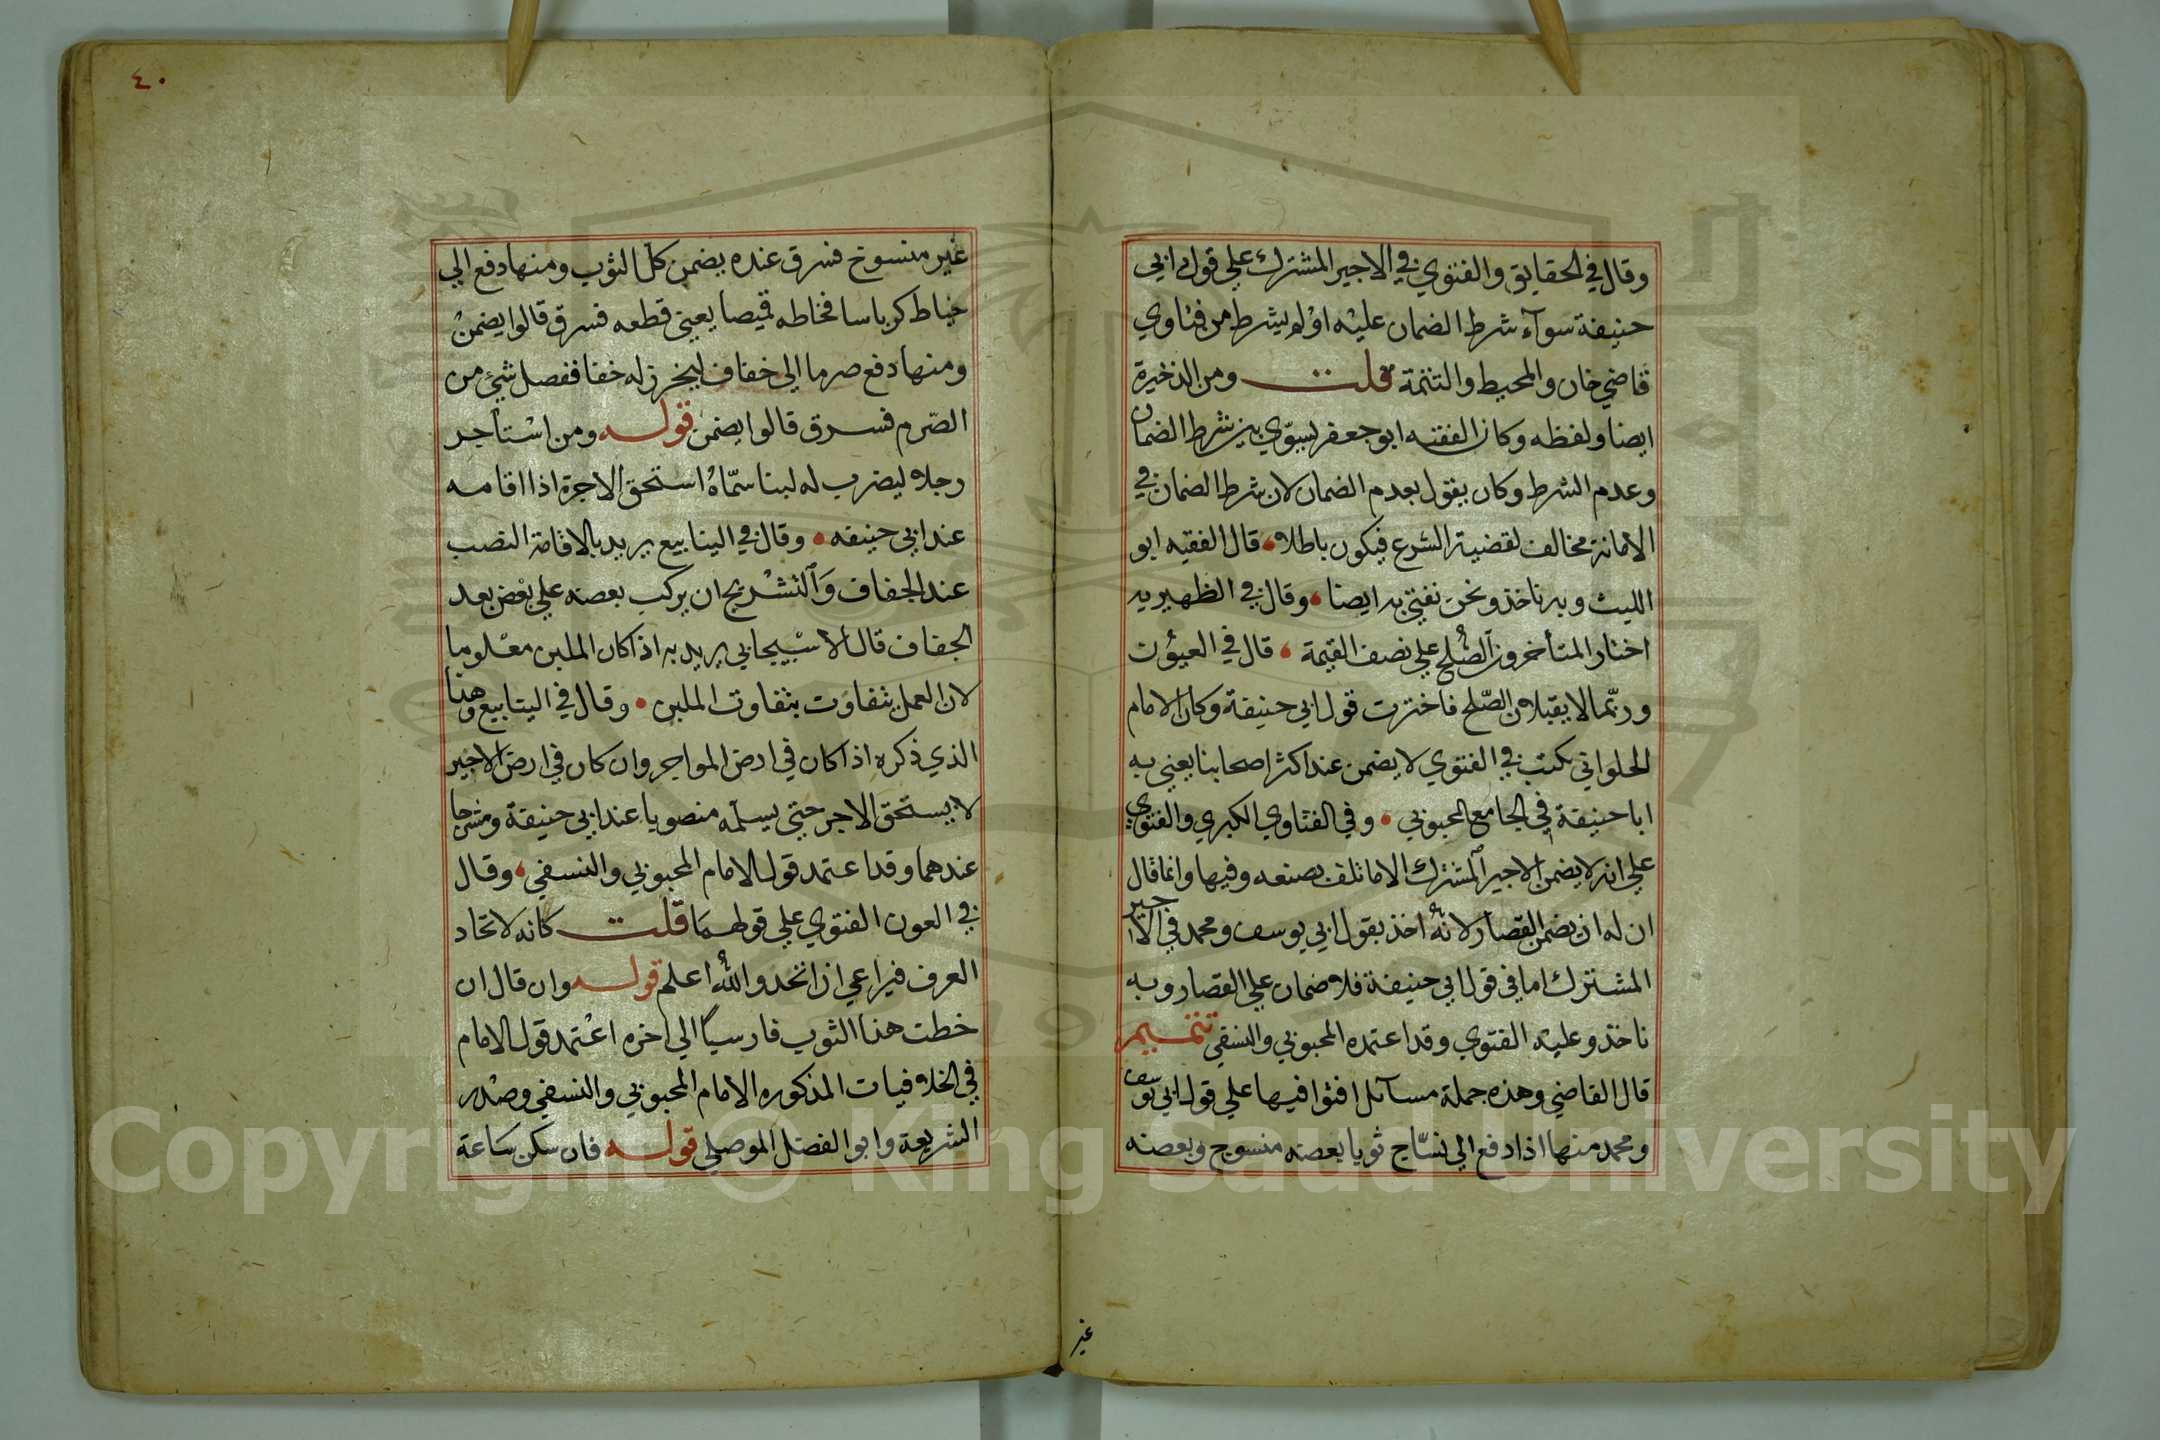 وقال في الحقايق والفتوي في الاجير المشترك علي قول ابي
حنيفة سوآء شرط الضمان عليه او لم يشرط من فتاوي
قاضي خان والمحيط والتتمة قلت ومن الذخيرة
ايضا ولفظه وكان الفقيه ابو جعفر يسوّي بين شرط الضمان
وعدم الشرط وكان يقول بعدم الضمان لان شرط الضمان في
الامانة مخالف لقضية الشرع فيكون باطلا قال الفقيه ابو
الليث وبه ناخذ ونحن نفتي به ايضا وقال في الظهيريه
اختار المتأخرون الصلح علي نصف القيمة قال في العيون
وربّما لا يقبلان الصّلح فاخترت قول ابي حنيفة وكان الامام
الحلواني يكتب في الفتوي لا يضمن عند اكثر اصحابنا يعني به
ابا حنيفة في الجامع المحبوبي وفي الفتاوي الكبري والفتوي
علي انه لا يضمن الاجير المشترك الا ما تلف بصنعه وفيها وانما قال
ان له ان يضمن القصار لانه اخذ بقول ابي يوسف ومحمد في الاجير
المشترك اما في قول ابي حنيفة فلا ضمان علي القصار وبه
ناخذ وعليه الفتوي وقد اعتمده المحبوبي والنسفي تتميم
قال القاضي وهذه جملة مسآئل افتوا فيها علي قول ابي يوسف
ومحمد منها اذا دفع الي نسّاج ثوبا بعضه منسوج وبعضه
غير
٤٠
غير منسوج فسرق عنده يضمن كل الثوب ومنها دفع الي
خياط كرباسا فخاطه قميصا يعني قطعه فسرق قالوا يضمن
ومنها دفع صرما الي خفاف ليخرز له خفا ففصل شئ من
الصّرم فسرق قالوا يضمن قوله ومن استأجر
رجلا ليضرب له لبنا سمّاهُ استحق الاجرة اذا اقامه
عند ابي حنيفه وقال في الينابيع يريد بالاقامة النصب
عند الجفاف والتشريج ان يركب بعضه علي بعض بعد
الجفاف قال الاسبيجابي يريد به اذا كان الملبن معلوما
لان العمل يتفاوت بتفاوت الملبن وقال في الينابيع وهذا
الذي ذكره اذا كان في ارض المواجر وان كان في ارض الاجير
لا يستحق الاجر حتي يسلمه منصوبا عند ابي حنيفة ومشرجا
عندهما وقد اعتمد قول الامام المحبوبي والنسفي وقال
في العون الفتوي علي قولهما قلت كانه لاتحاد
العرف فيراعي ان اتحد والله اعلم قوله وان قال ان
خطت هذا الثوب فارسيا الي اخره اعتمد قول الامام
في الخلافيات المذكوره الامام المحبوبي والنسفي وصدر
الشريعة وابو الفضل الموصلي قوله فان سكن ساعة
Copyright © King Saud University